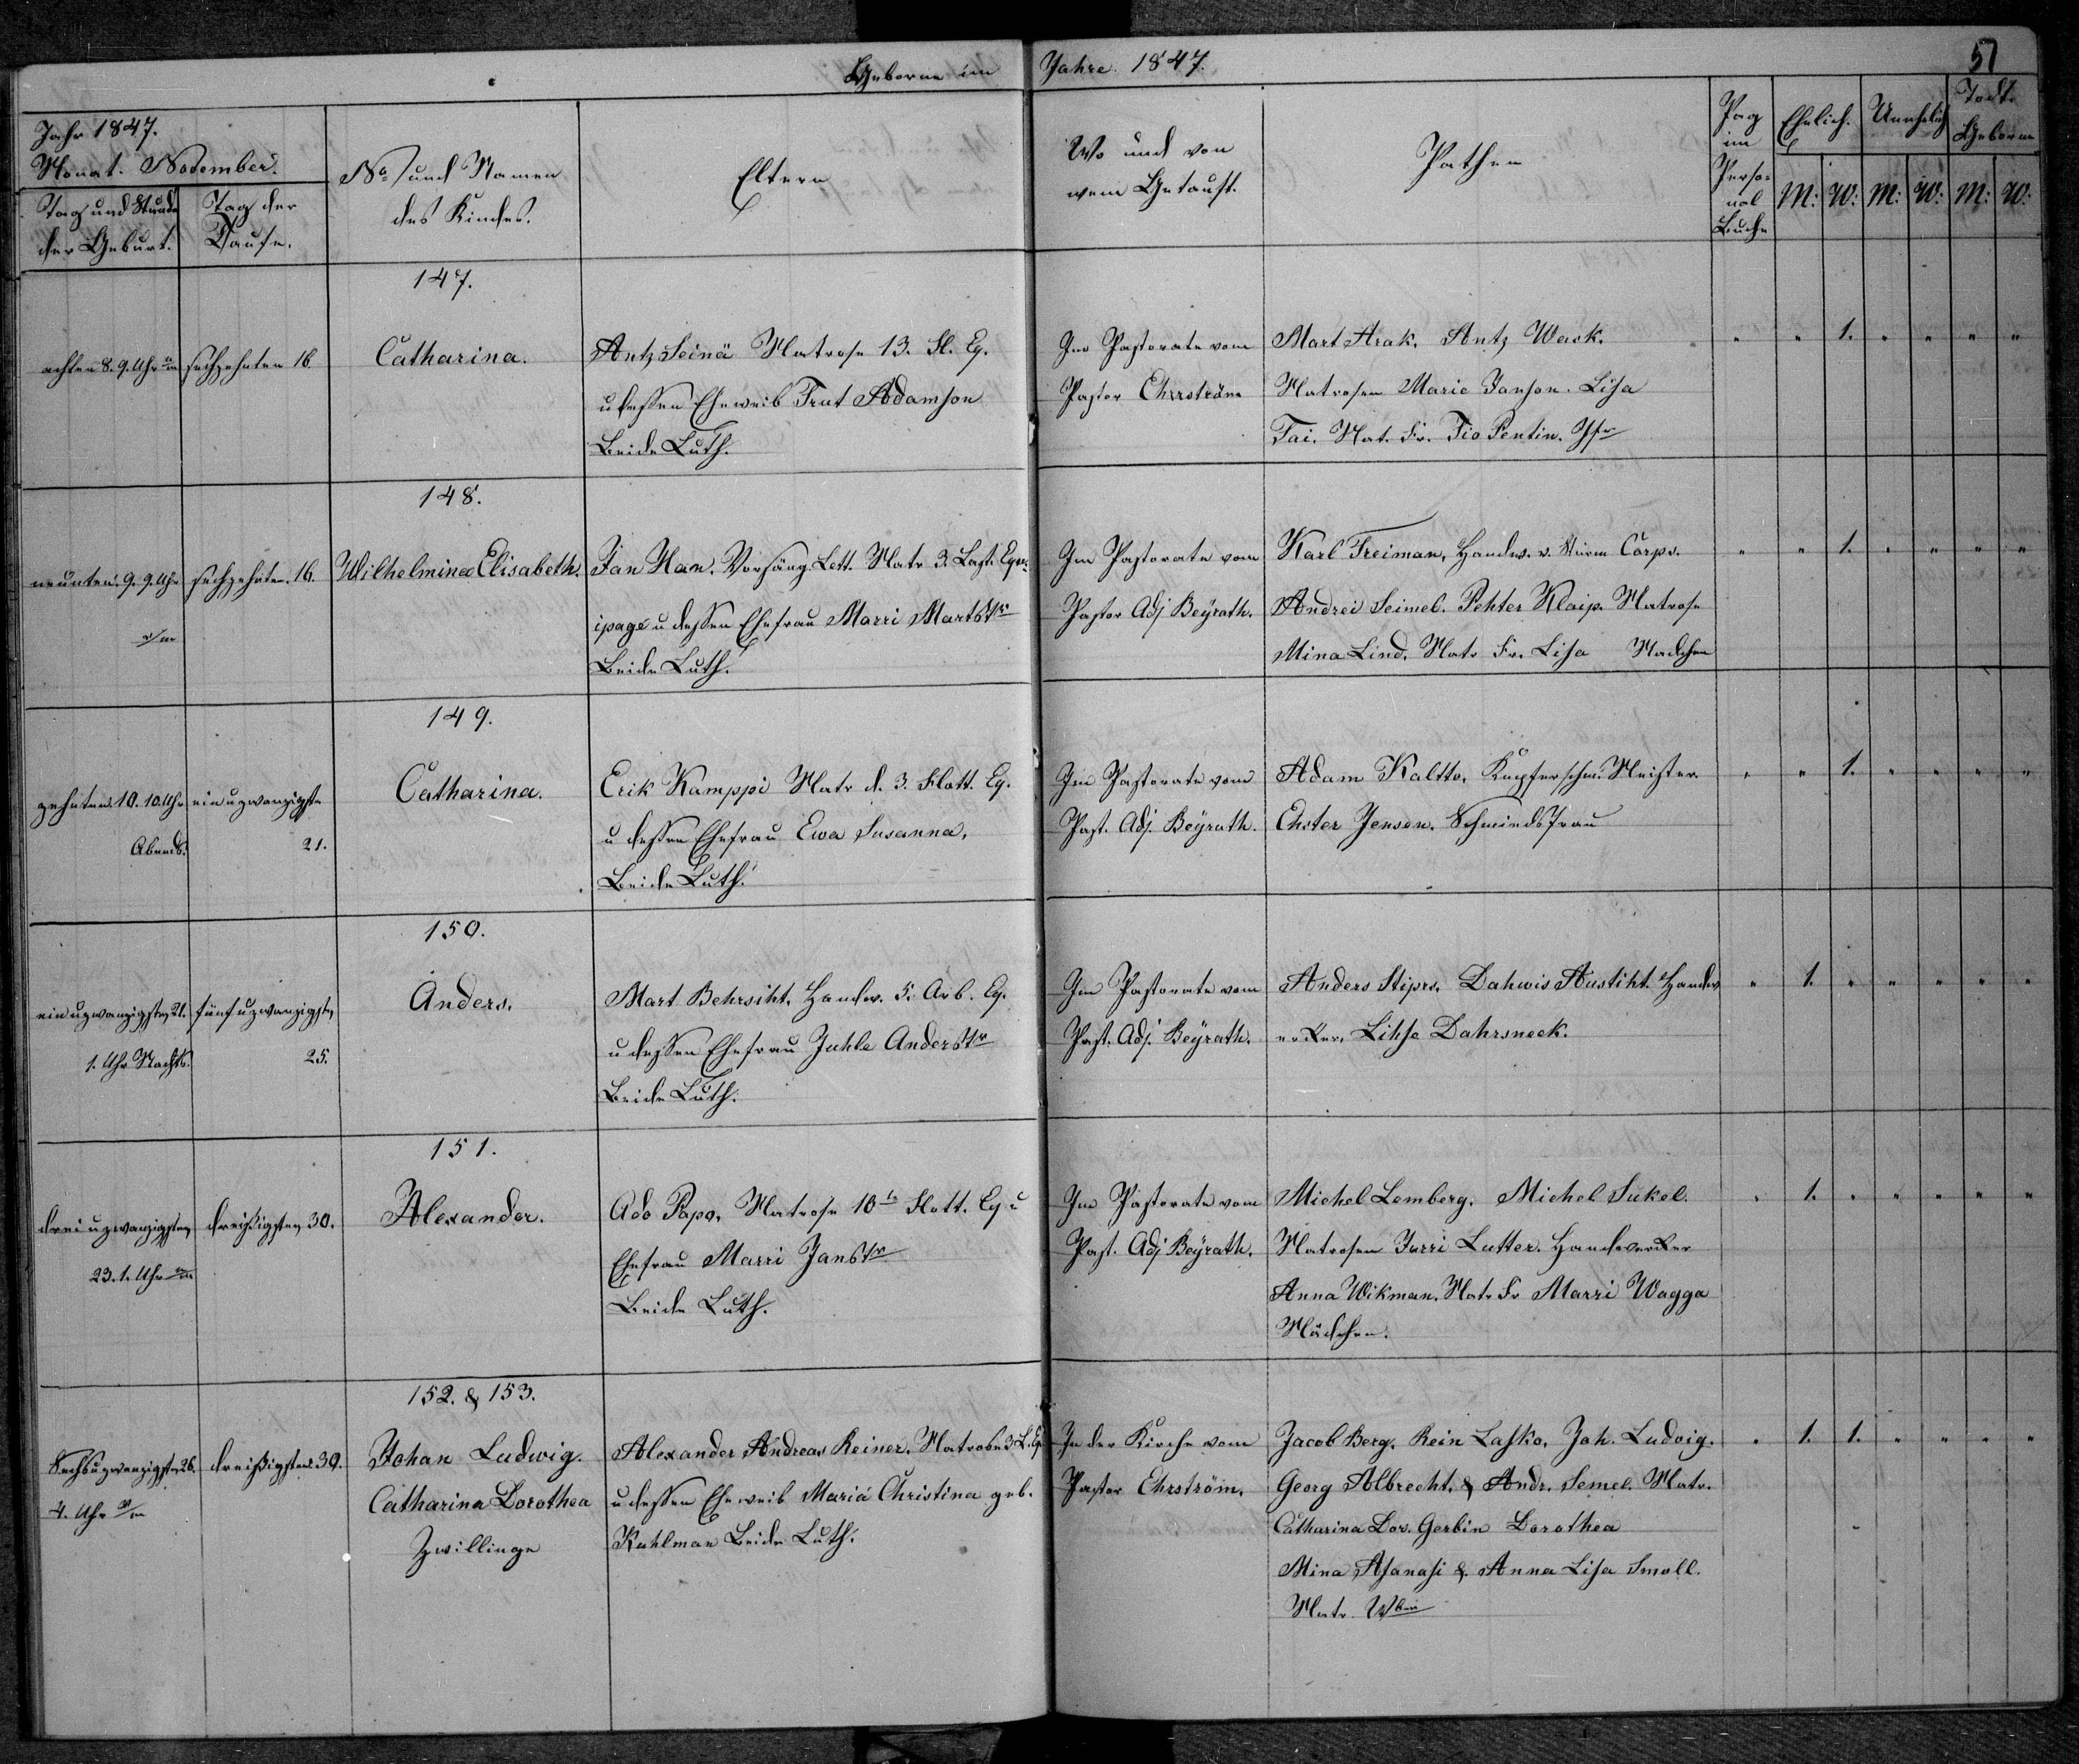 Geborne im Jahre 1847.
51
Jahr 1847.
Monat. November.
Tag und Stunde der Geburt.
Tag der Taufe.
No und Namen des Kindes.
Eltern
Wo und von wem Getauft.
Pathen
Pag im Personal Buche
Ehelich.
Unehelich
Todt Geborne
M: W: M: W: M: W:
147.
achten 8. 9. Uhr
sechzehnten 16.
Catharina.
Antz Seinä Matrose 13. Fl. Eq.
u dessen Eheweib Trut Adamson
Beide Luth.
Im Pastorate vom
Pastor Ehrström
Mart Arak. Antz Wack.
Matrosen Marie Janson. Lisa
Tai. Mat. Fr. Tio Pentin.
" " 1. " " " "
148.
neunten 9. 9. Uhr
sechzehnten. 16.
Wilhelmina Elisabeth.
Jan Nan. Vorsäng. Lett. Matr 3. Last. Equ-
ipage u dessen Ehefrau Marri Martstr
Beide Luth.
Im Pastorate vom
Pastor Adj Beÿrath.
Karl Freiman, Handw. v. Sturm Corps.
Andrei Seimel. Pehter Klaip. Matrose
Mina Lind. Matr Fr. Lisa Madchen
" " 1. " " " "
149.
zehnten 10. 10. Uhr
Abends.
ein u zwanzigsten
21.
Catharina.
Erik Kamppi Matr d. 3. Flott. Eq.
u dessen Ehefrau Ewa Susanna.
Beide Luth.
Im Pastorate vom
Past. Adj. Beÿrath.
Adam Kaltto, Kupferschm. Meister
Ehster Jensen. Schmiedsfrau
" " 1. " " " "
150.
ein u zwanzigsten 21.
1. Uhr Nachts.
fünf u zwanzigsten
25.
Anders.
Mart Behrsiht. Handw. 5. Arb. Eq.
u dessen Ehefrau Juhle Anderstr
Beide Luth.
Im Pastorate vom
Past. Adj. Beÿrath.
Anders Stiprs. Dahwis Austiht. Handw
erker. Lihse Dahrsneek.
" 1. " " " " "
151.
drei u zwanzigsten
23. 1. Uhr
dreißigsten 30.
Alexander.
Ado Papo. Matrose 10t Flott. Eq u
Ehefrau Marri Janstr
Beide Luth.
Im Pastorate vom
Past. Adj Beÿrath.
Michel Lemberg. Michel Sukel.
Matrosen Jurri Lutter. Handwerker
Anna Wikman. Matr Fr Marri Wagga
Mädchen.
" 1. " " " " "
152. & 153.
Sechs u zwanzigsten 26.
4. Uhr
dreißigsten 30.
Johan Ludwig.
Catharina Dorothea
Zwillinge
Alexander Andreas Reiner. Matrose 3 L. Eq
u dessen Eheweib Maria Christina geb.
Kuhlman Beide Luth.
In der Kirche vom
Pastor Ehrström.
Jacob Berg. Rein Lasko. Joh. Ludvig.
Georg Albrecht. & Andr. Semel. Matr.
Catharina Dor. Gerbin Dorothea
Mina Afanasi & Anna Lisa Smoll.
Matr.
" 1. 1. " " " "